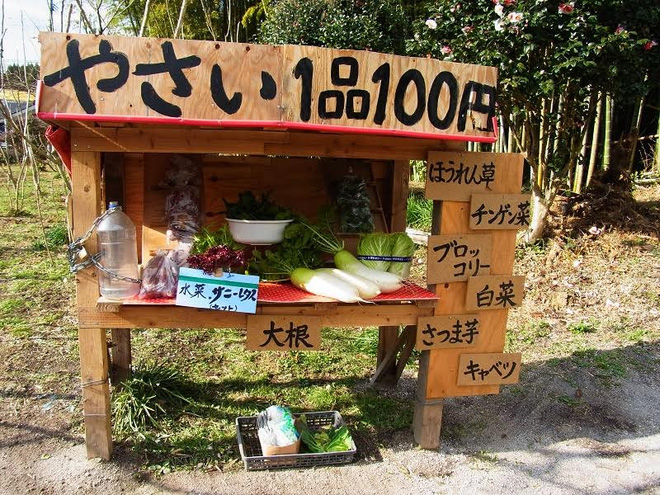 やさい1品100円
ほうれん草
チンゲン菜
ブロッ
コリー
白菜
さつま芋
キャベツ
水菜.サニーレタス
(セット)
大根